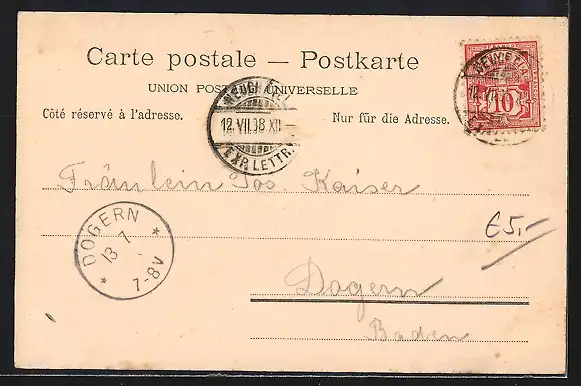 Carte postale — Postkarte
UNION POSTALE UNIVERSELLE
Côté réservé à l'adresse.
Nur für die Adresse.
HELVETIA
10
12.VII.98 XII –
EXP. LETTR.
Fräulein Jos. Kaiser
DOGERN
13 7
7-8V
€5.-
Dogern
Baden